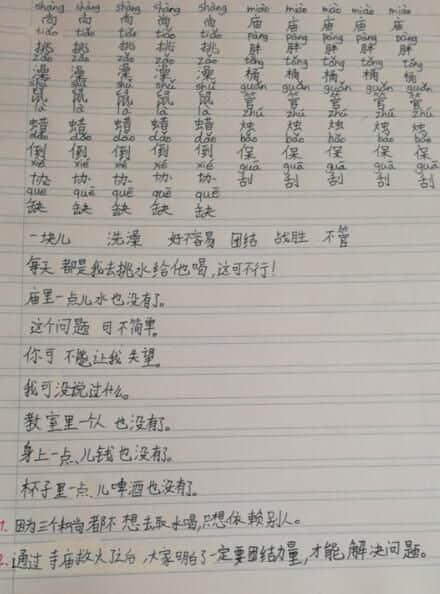 shàng shàng shàng shàng shàng miào miào mào miào miào
尚 尚 尚 尚 尚 庙 庙 庙 庙 庙
tiāo tiāo tiāo tiāo tiāo pàng pàng pàng pàng pàng
挑 挑 挑 挑 挑 胖 胖 胖 胖 胖
zǎo zǎo zǎo zǎo zǎo tǒng tǒng tǒng tǒng tǒng
澡 澡 澡 澡 澡 桶 桶 桶 桶 桶
shǔ shǔ shǔ shǔ shǔ guǎn guǎn guǎn guǎn guǎn
鼠 鼠 鼠 鼠 鼠 管 管 管 管 管
là là là là là zhú zhú zhú zhú zhú
蜡 蜡 蜡 蜡 蜡 烛 烛 烛 烛 烛
dǎo dǎo dǎo dǎo dǎo bǎo bǎo bǎo bǎo bǎo
倒 倒 倒 倒 倒 保 保 保 保 保
xié xié xié xié xié guā guā guā guā guā
协 协 协 协 协 刮 刮 刮 刮 刮
quē quē quē quē quē
缺 缺 缺 缺 缺
一块儿 洗澡 好不容易 团结 战胜 不管
每天都是我去挑水给他喝,这可不行!
庙里一点儿水也没有了。
这个问题可不简单。
你可不能让我失望。
我可没说过什么。
教室里一个人也没有了。
身上一点儿钱也没有了。
杯子里一点儿啤酒也没有了。
1. 因为三个和尚都不想去取水喝,只想依赖别人。
2. 通过寺庙救火了后,大家明白了一定要团结力量,才能解决问题。